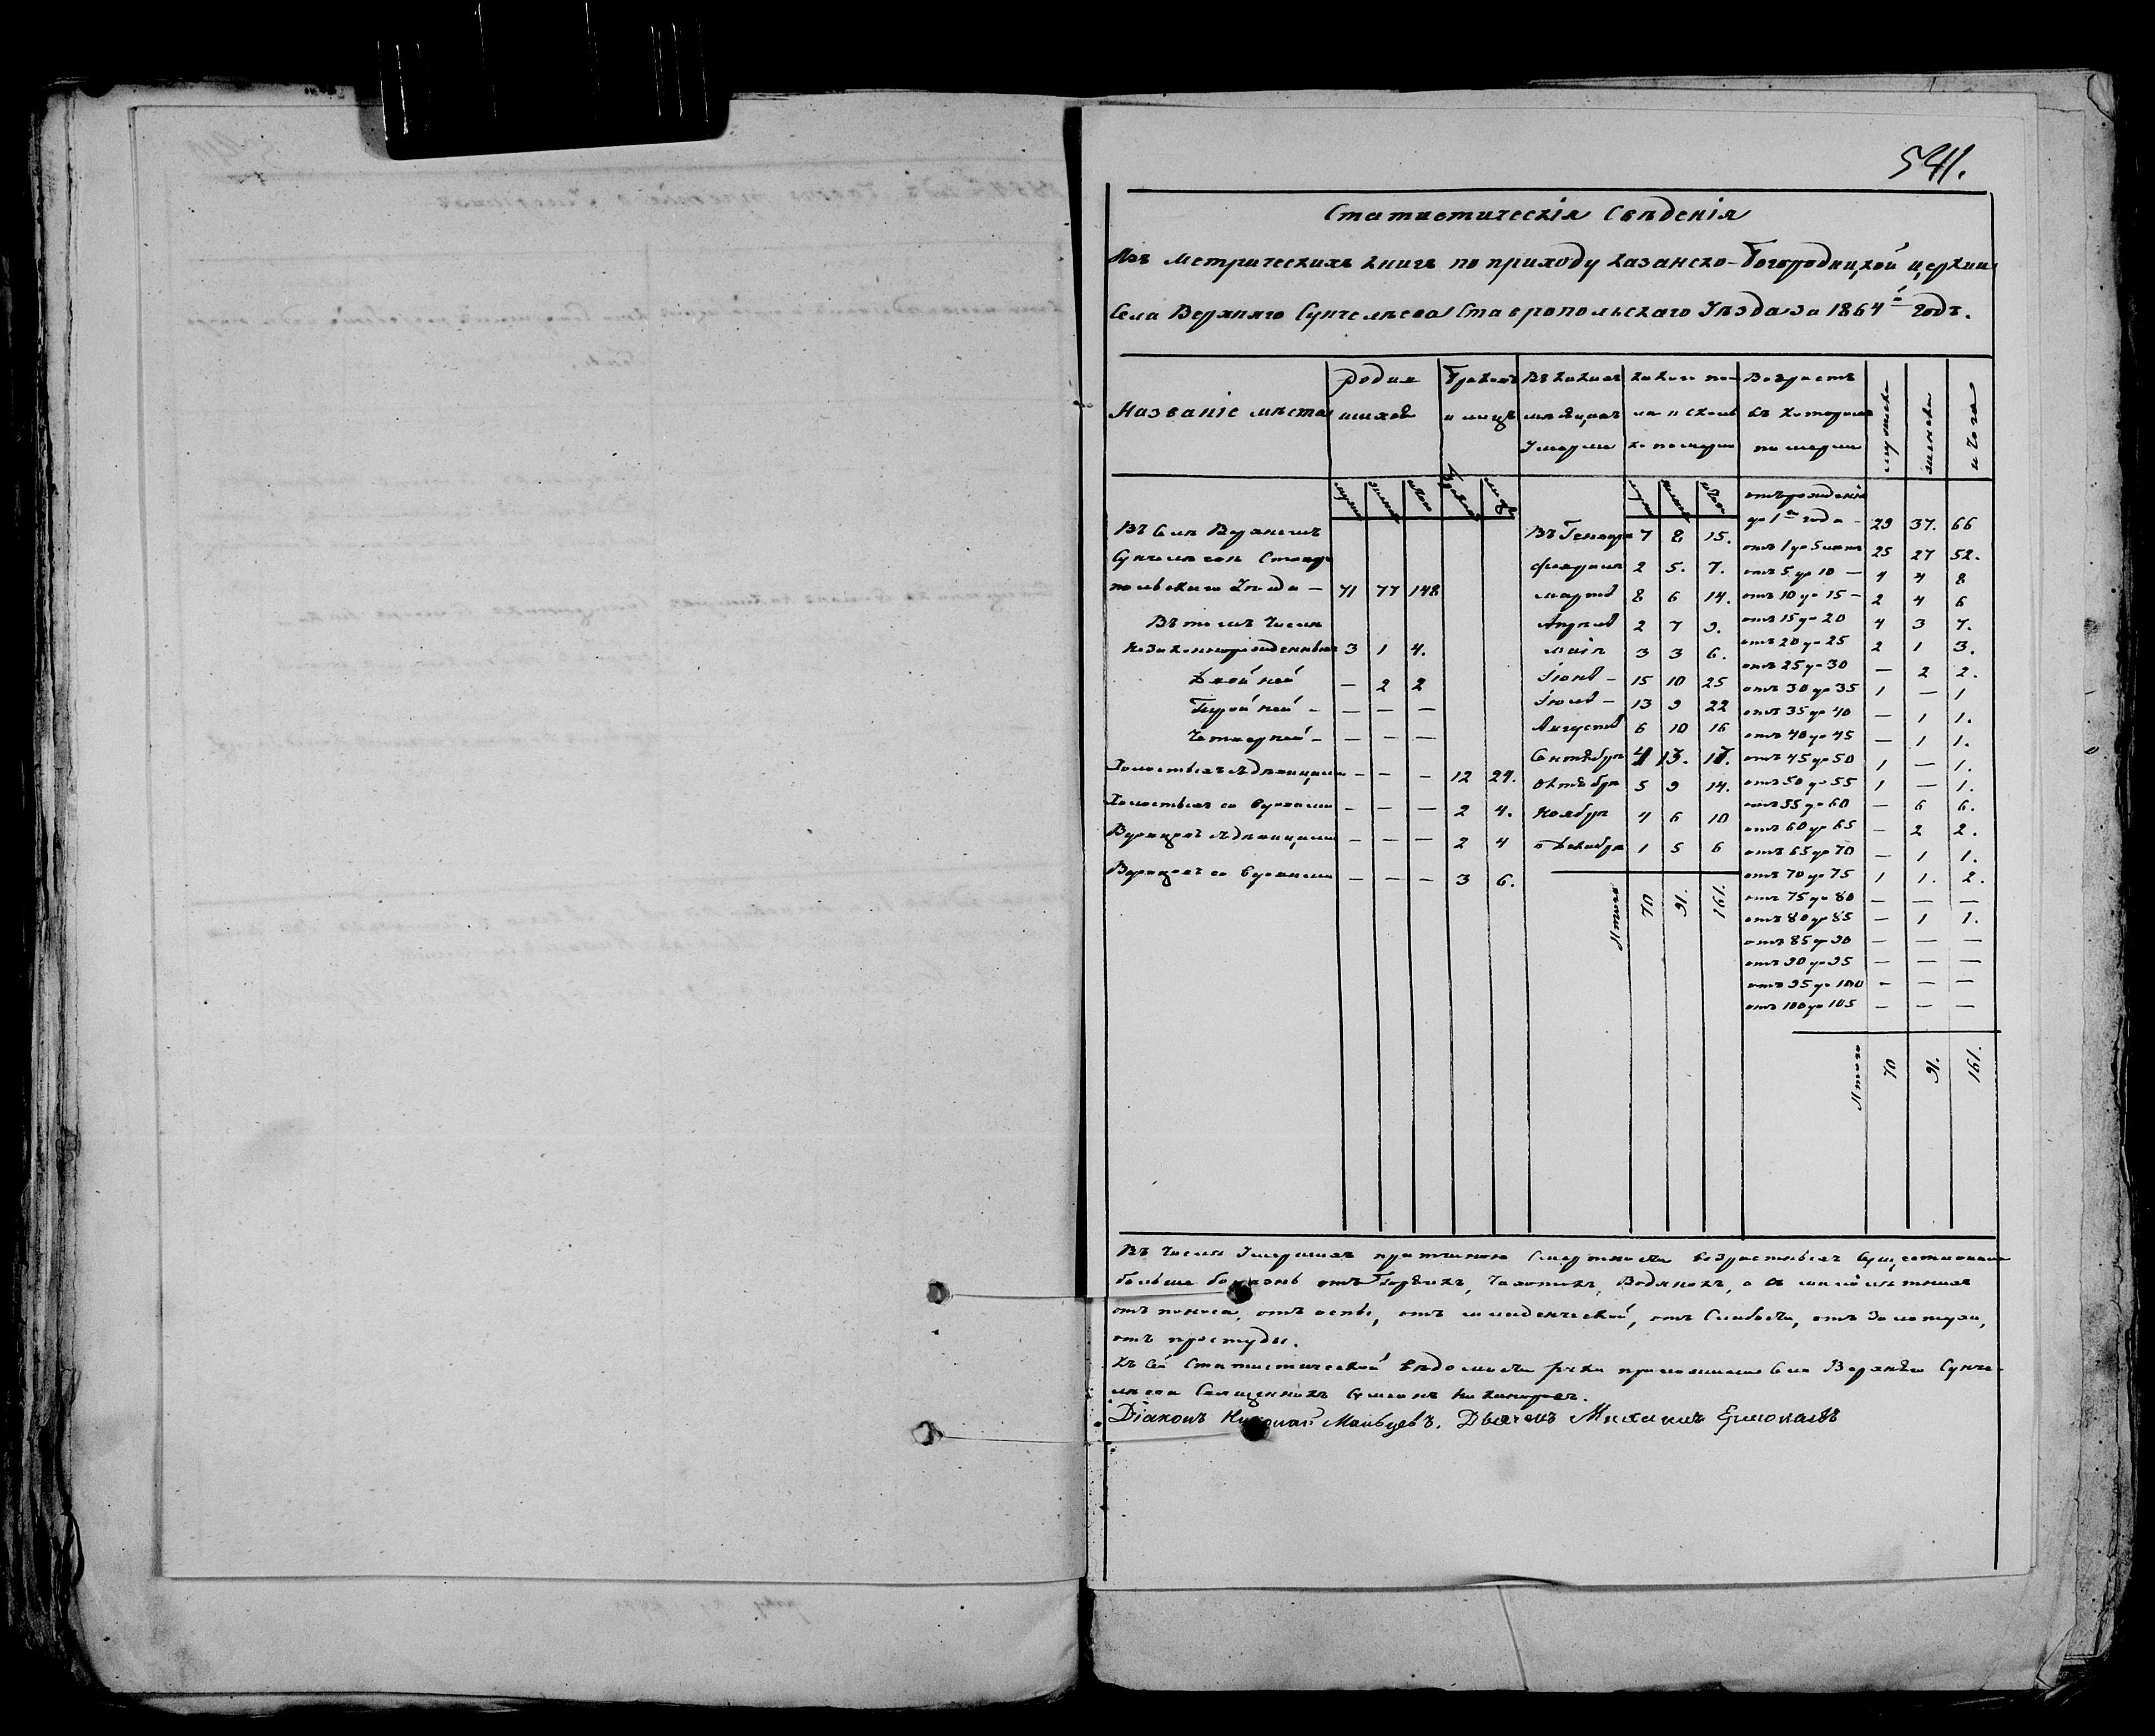 541.
Статистическія Свѣдѣнія
Изъ метрическихъ книгъ по приходу Казанско-Богородицкой церкви
Села Верхняго Сунчелѣева Ставропольскаго Уѣзда за 1864й годъ.
Названіе мѣста | родив шихся | Браковъ и лицъ | Въ какихъ мѣсяцахъ Умерли | какого по ла и сколь ко померло | Возрастъ въ которомъ померли | мужеска | женска | итого
Въ Селѣ Верхнемъ Сунчелѣевѣ Ставро польскаго Уѣзда — 71 77 148
Въ томъ числѣ
Незаконнорожденныхъ 3 1 4.
Двойней — 2 2
Тройней - — — —
Четверней - — — —
Холостыхъ съ дѣвицами - - - 12 24.
Холостыхъ со вдовами — — — 2 4.
Вдовцовъ съ дѣвицами — — — 2 4
Вдовцовъ со вдовами — — — 3 6.
Въ Генварѣ 7 8 15.
Февралѣ 2 5. 7.
мартѣ 8 6 14.
Апрѣлѣ 2 7 9.
маіѣ 3 3 6.
Іюнѣ - 15 10 25
Іюлѣ - 13 9 22
Августѣ 6 10 16
Сентябрѣ 4 13. 17.
Октябрѣ 5 9 14.
Ноябрѣ 4 6 10
Декабрѣ 1 5 6
Итого 70 91. 161.
отъ рожденія до 1го года - 29 37. 66
отъ 1 до 5 лѣтъ 25 27 52.
отъ 5 до 10 — 4 4 8
отъ 10 до 15 - 2 4 6
отъ 15 до 20 4 3 7.
отъ 20 до 25 2 1 3.
отъ 25 до 30 — 2 2.
отъ 30 до 35 1 — 1
отъ 35 до 40 — 1 1.
отъ 40 до 45 — 1 1.
отъ 45 до 50 1 — 1.
отъ 50 до 55 1 — 1.
отъ 55 до 60 — 6 6.
отъ 60 до 65 — 2 2.
отъ 65 до 70 — 1 1.
отъ 70 до 75 1 1. 2.
отъ 75 до 80 — — —
отъ 80 до 85 — 1 1.
отъ 85 до 90 — — —
отъ 90 до 95 — — —
отъ 95 до 100 - — —
отъ 100 до 105 — — —
Итого 70 91. 161.
Въ числѣ Умершихъ причиною Смертности возрастныхъ
больше болѣзнь отъ Горячки, Чахотки, Водянки, а въ малолѣтныхъ
отъ поноса, отъ оспы, отъ младенческой, отъ Слабости, отъ Золотухи,
отъ простуды.
Къ Сей Статистической вѣдомости руки приложили Села Верхняго Сунче-
лѣева Священникъ
Діаконъ Николай Мальцевъ. Дьячекъ Михаилъ Ермолаевъ